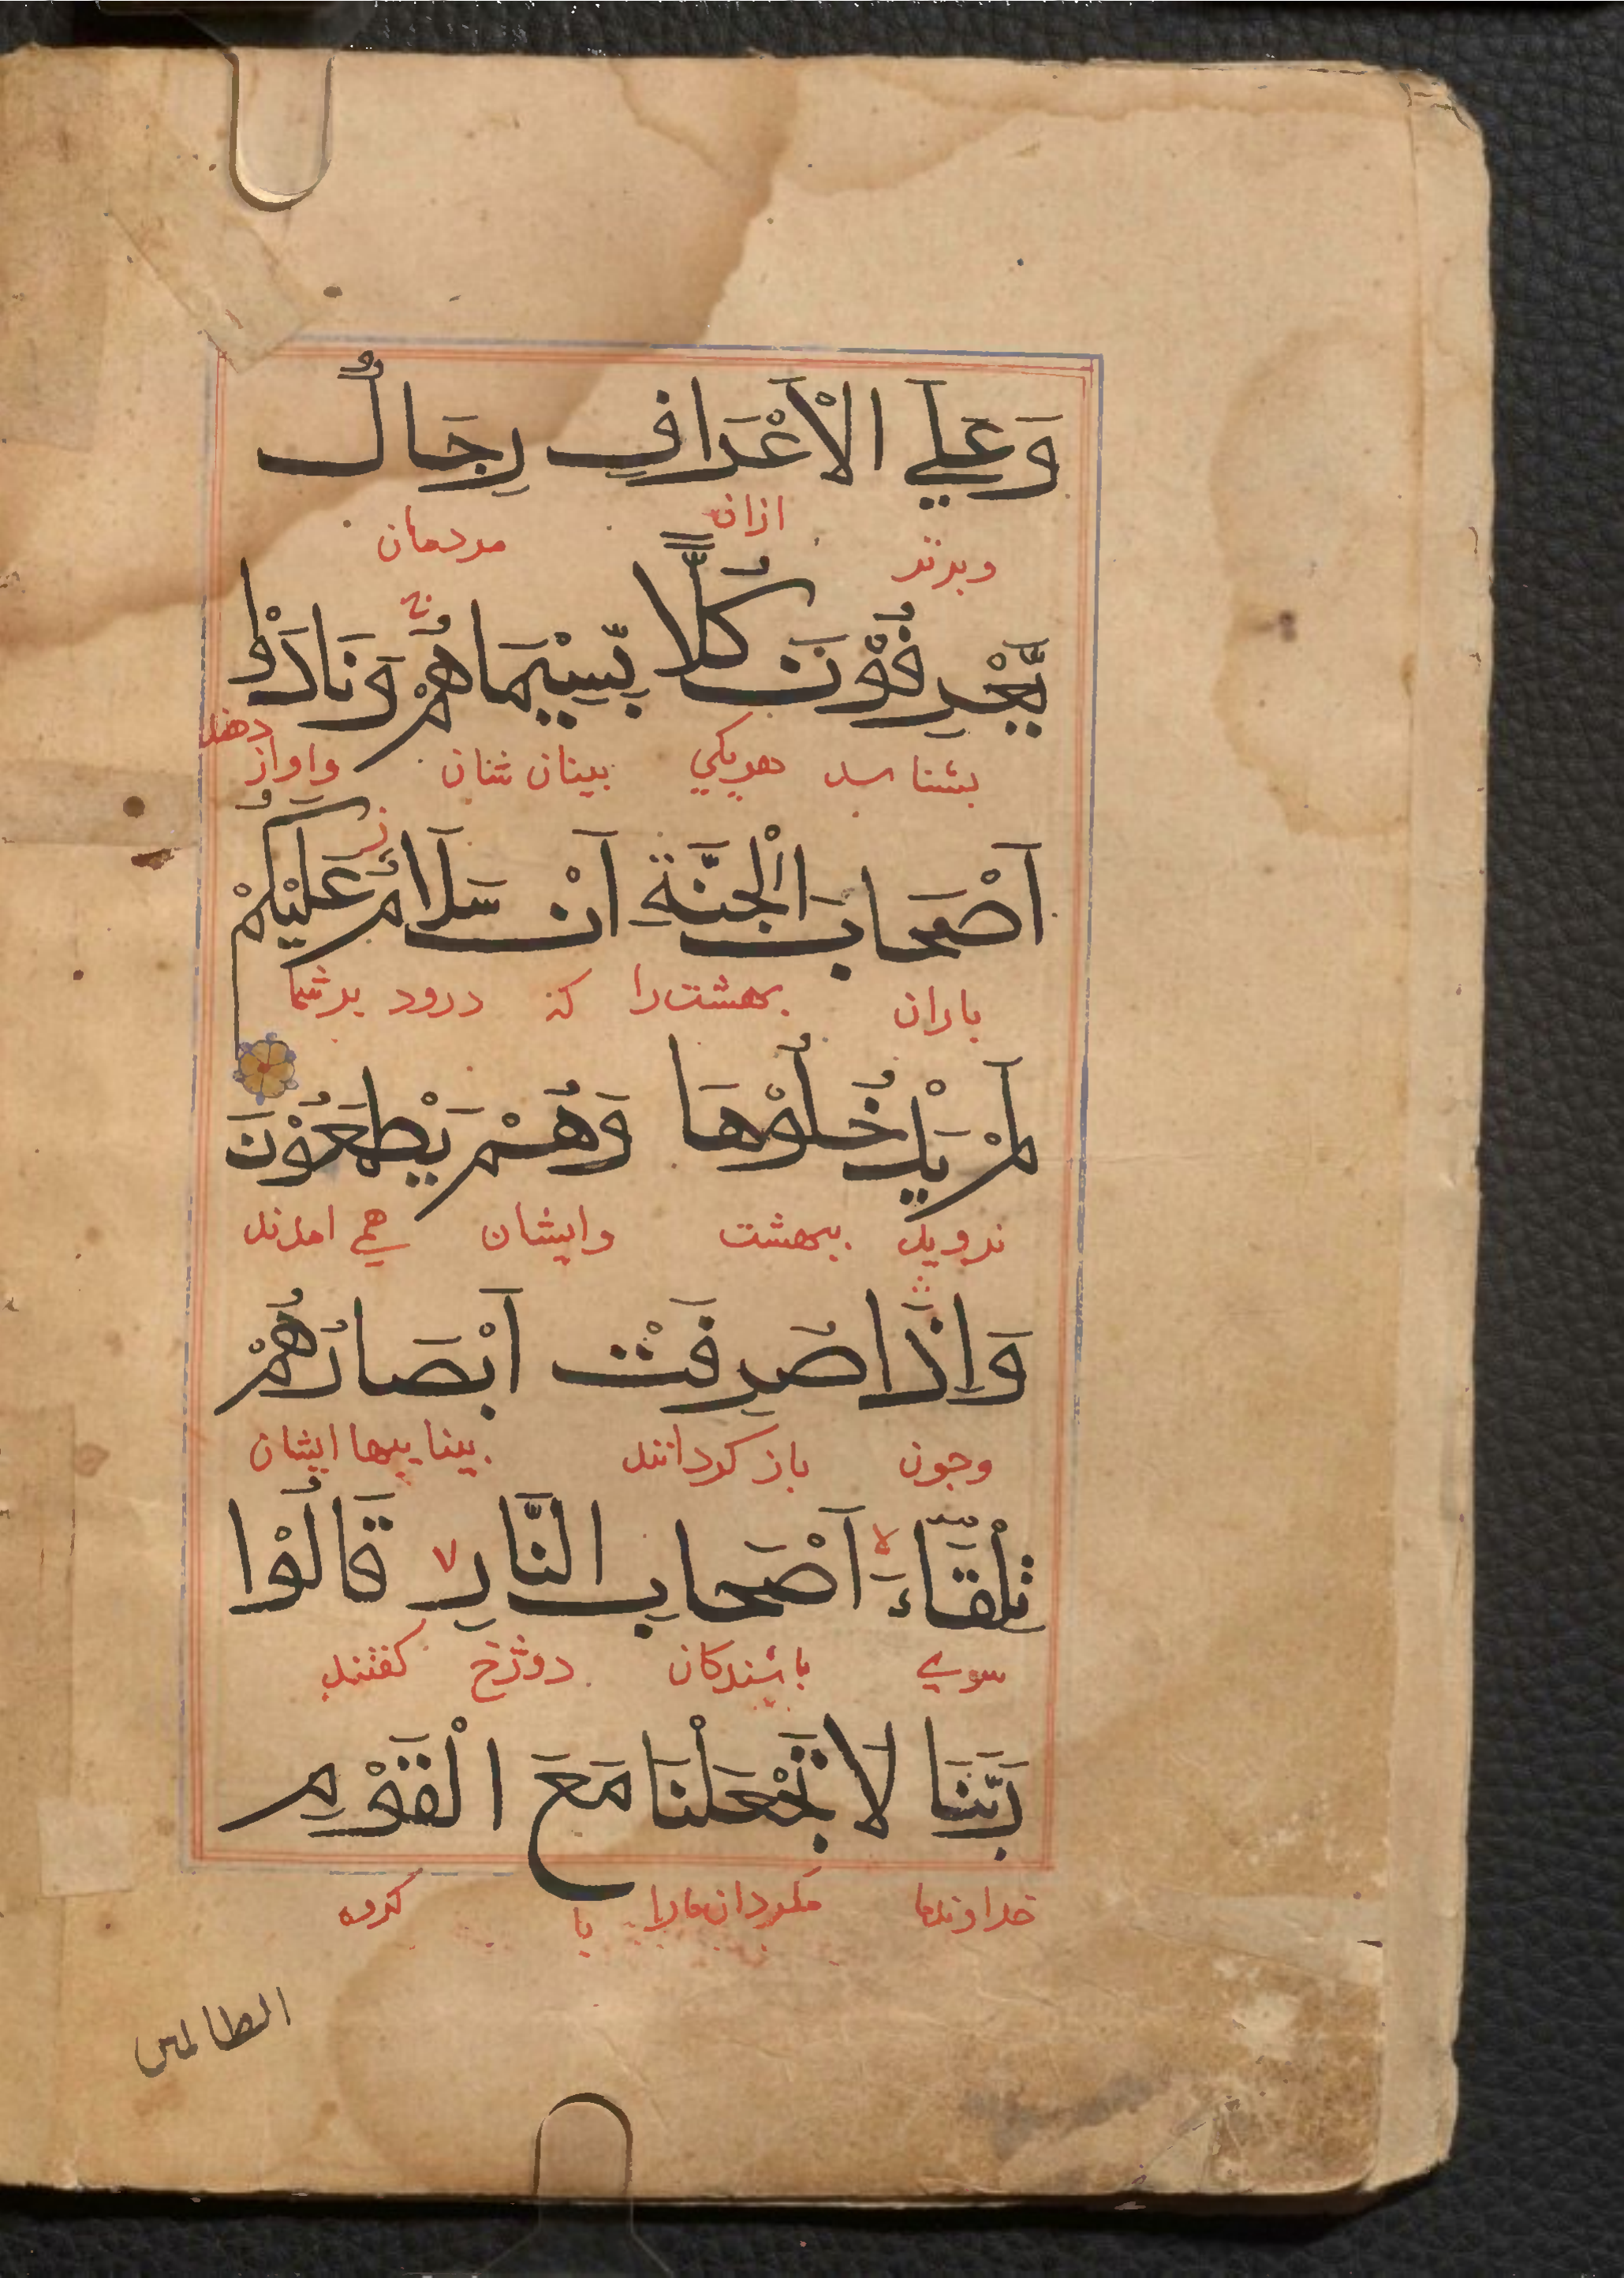 وَعَلَي الْأَعْرَافِ رِجَالٌ
وبرند ازان مردمان
يَّعْرِفُوْنَ كُلًّا بِّسِيْمَاهُمْ وَنَادَوْا
بشناسد هريكي بينان شنان واواز دهند
اَصْحَابَ الْجَنَّةِ اَنْ سَلَامٌ عَلَيْكُمْ
ياران بهشت را كه درود بر شما
لَمْ يَدْخُلُوْهَا وَهُمْ يَطْمَعُوْنَ
ندرويد ببهشت وايشان همي امدند
وَاِذَا صُرِفَتْ اَبْصَارُهُمْ
وجون باز كردانند بيناييها ايشان
تِلْقَّاءَ اَصْحَابِ النَّارِ قَالُوْا
سوي باشندكان دوزخ كفتند
رَبَّنَا لَا تَجْعَلْنَا مَعَ الْقَوْمِ
خداوندما مكردان مارا با كروه
الطالمں